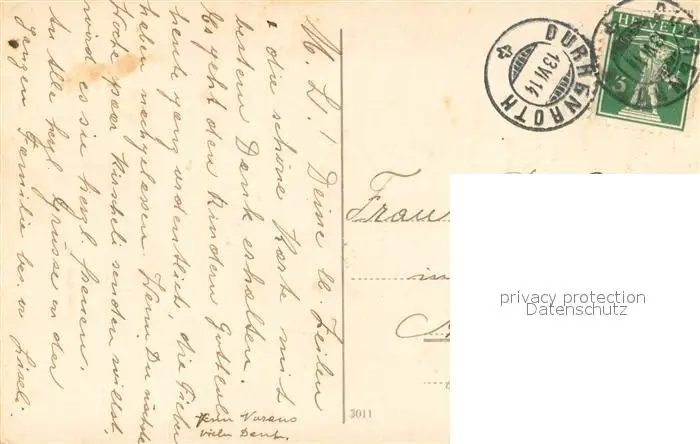 M. L! Deine lb. Zeilen
u. die schöne Karte mit
bestem Dank erhalten.
Es geht den Kindern Gottlob
heute ganz ordentlich, die Fieber
haben nachgelassen. Wenn Du nächste
Woche paar Kirscheli senden willst,
wird es sie herzl. freuen.
An Alle herzl. Grüsse u. der
ganzen Familie bes. v. Liseli.
zum Voraus
vielen Dank.
3011
DÜRRENROTH
13 VI 14
HELVETIA
5
Frau
in
privacy protection
Datenschutz